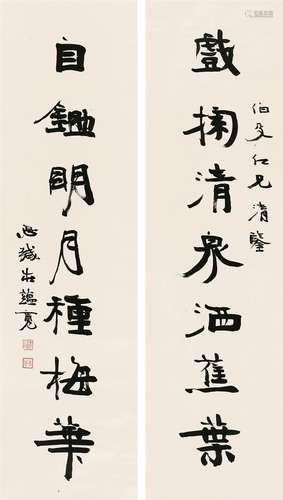 戲掬清泉洒蕉葉
伯文仁兄清鑒
自鋤明月種梅華
思緘莊蘊寬